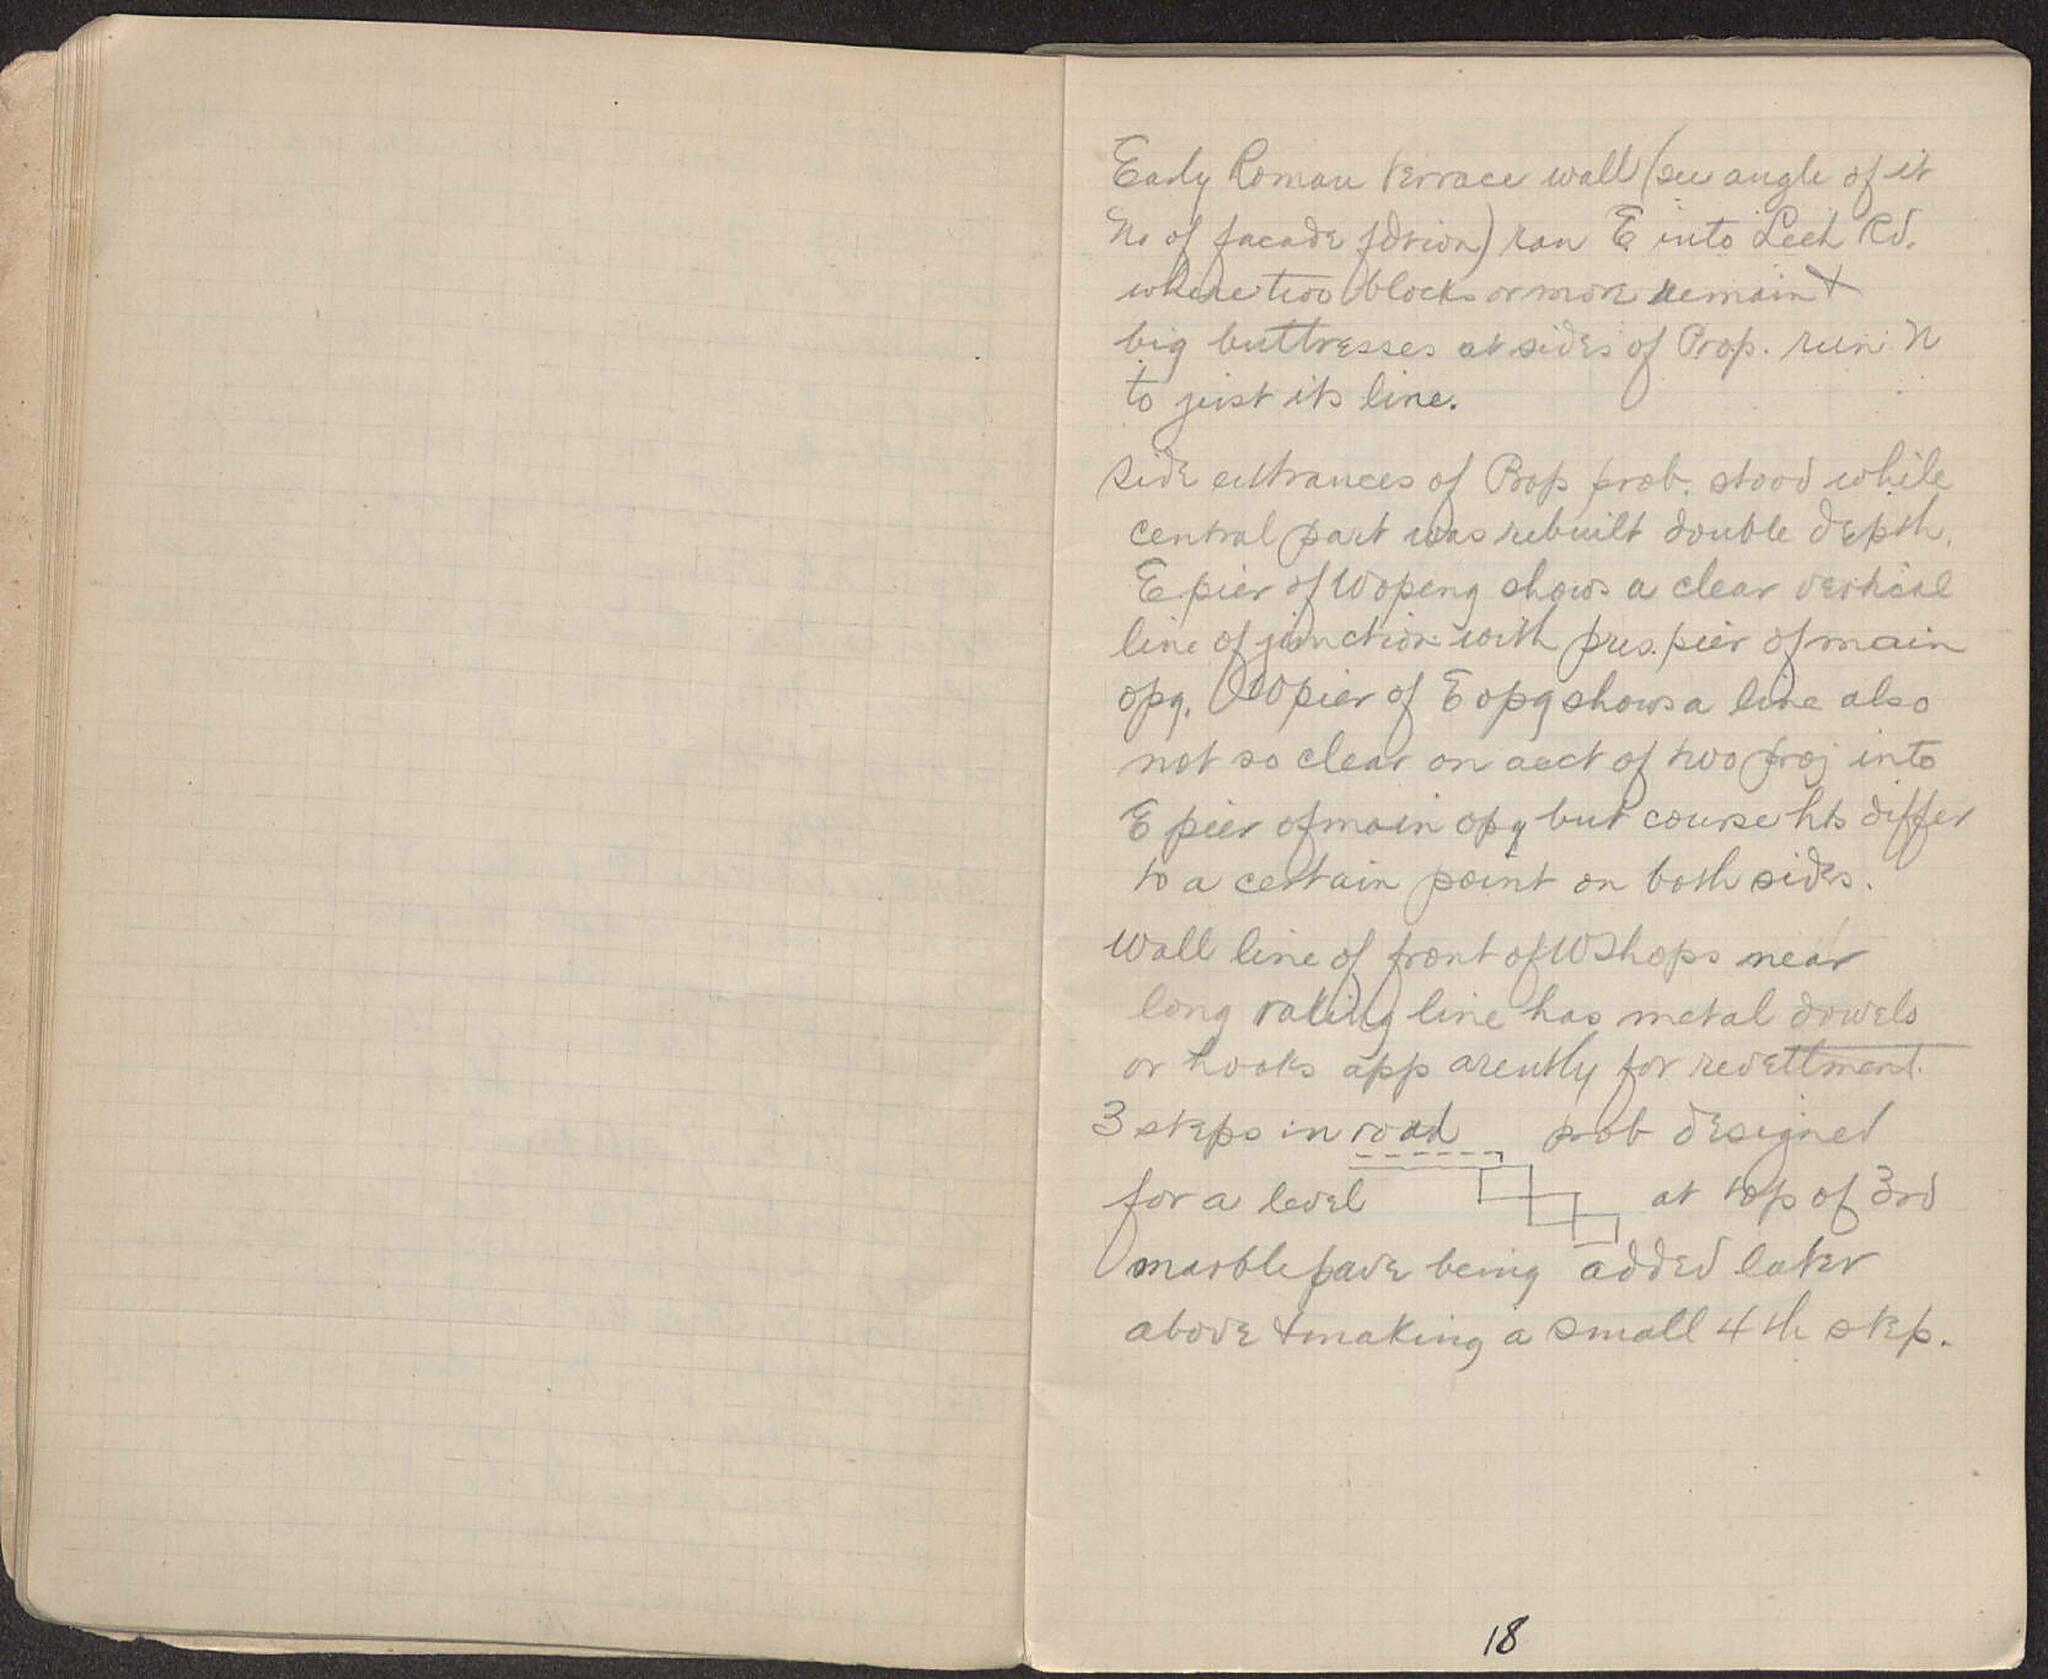 Early Roman terrace wall (see angle of it
N. of facade fdtion) ran E into Lech Rd.
where two blocks or more remain &
big buttresses at sides of Prop. run N
to just its line.
Side entrances of Prop prob. stood while
central part was rebuilt double depth.
E pier of W openg shows a clear vertical
line of junction with pres. pier of main
opg. W pier of E opg shows a line also
not so clear on acct of two proj into
E pier of main opg but course hts differ
to a certain point on both sides.
Wall line of front of W Shops near
long raking line has metal dowels
or hooks apparently for revettment.
3 steps in road prob designed
for a level at top of 3rd
marble pave being added later
above & making a small 4th step.
18